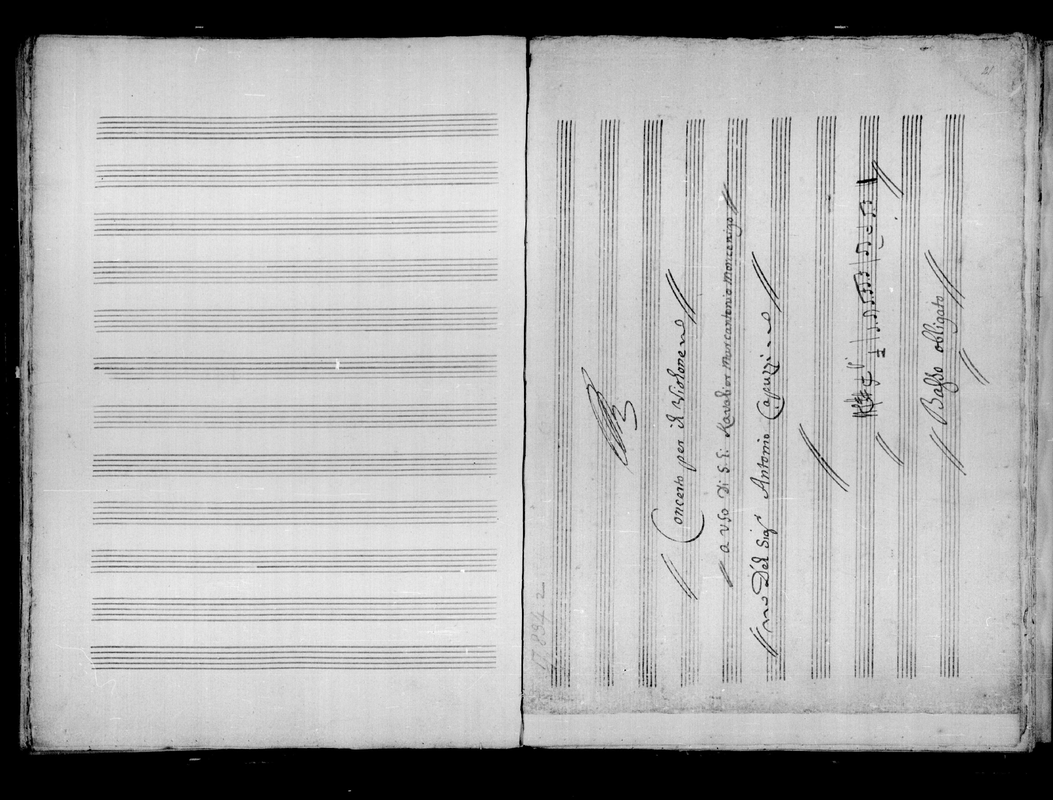 Concerto per il Violone
a uso Di S. E. Kavalier Marcantonio Mocenigo
Del Sigr Antonio Capuzzi
Basso obligato
17834
21